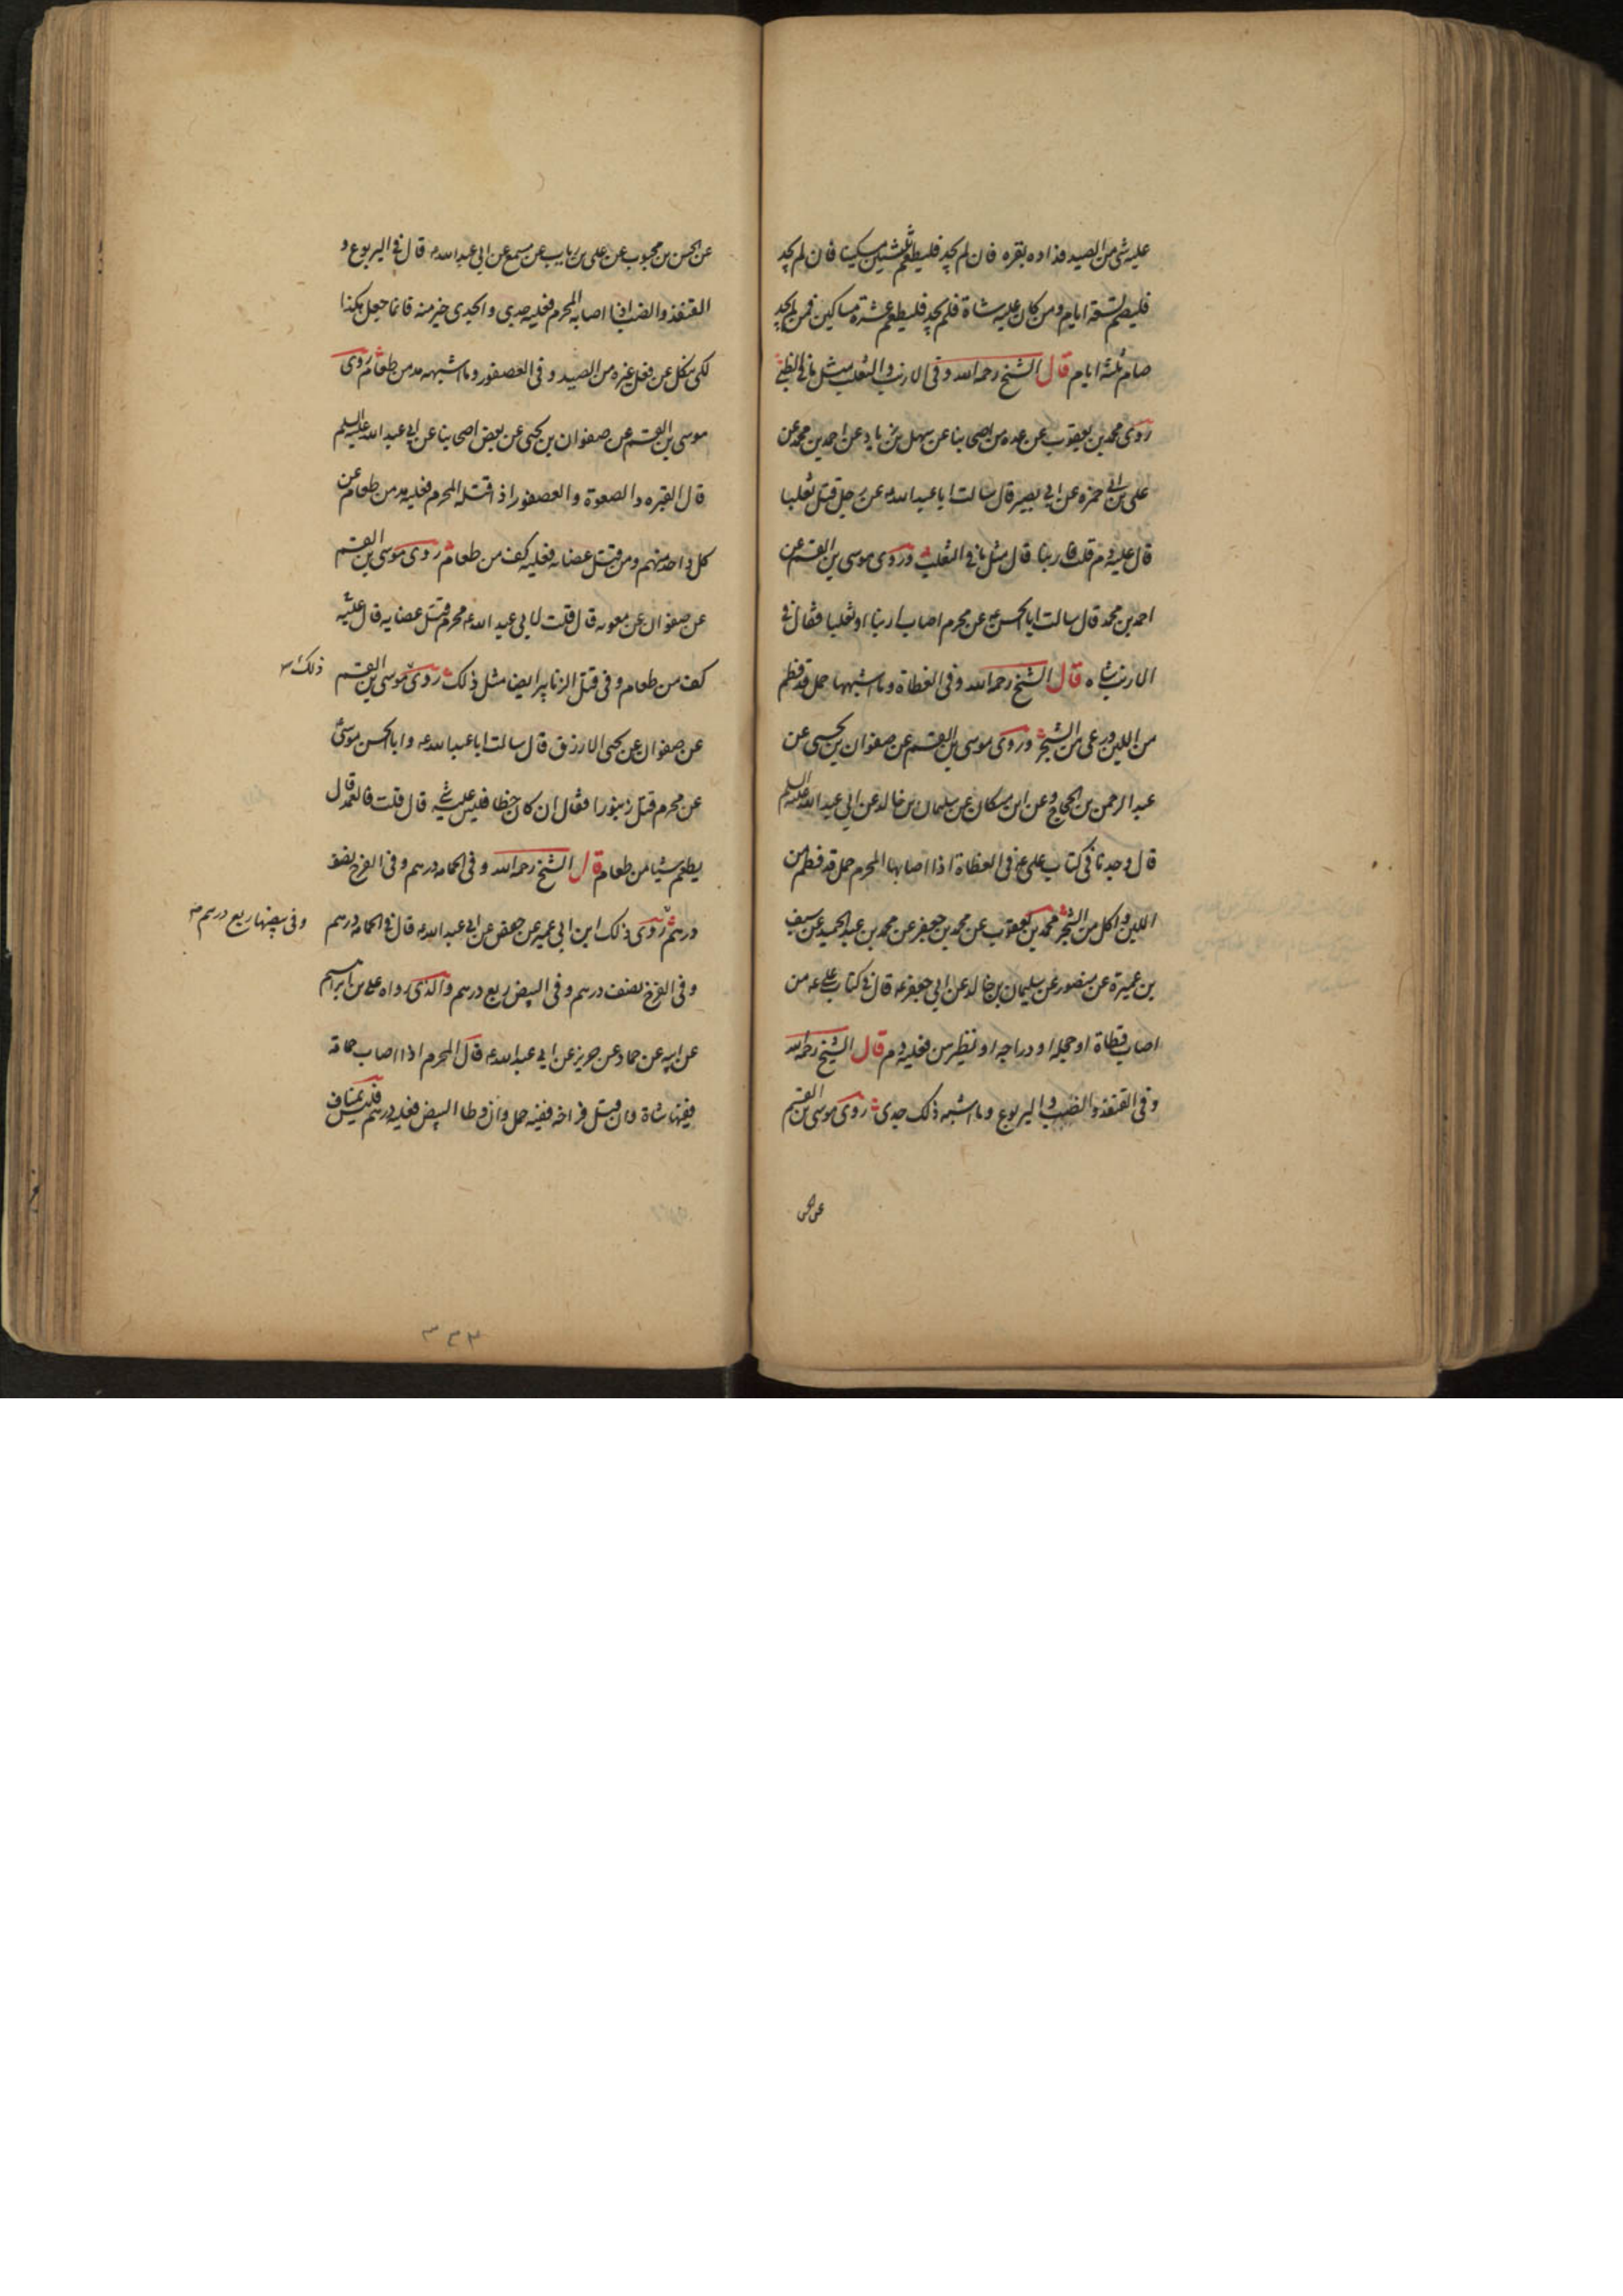 عليه شى من الصيد فداوه بقره فان لم يجد فليطعم ثلثين مسكينا فان لم يجد
فليصم تسعة ايام ومن كان عليه شاة فلم يجد فليطعم عشرة مساكين فمن لم يجد
صام ثلثة ايام قال الشيخ رحمه الله وفى الارنب والثعلب مثل ما فى الظبى
روى محمد بن يعقوب عن عده من اصحابنا عن سهل بن زياد عن احمد بن محمد عن
على بن ابى حمزه عن ابى بصير قال سالت ابا عبد الله ع عن رجل قتل ثعلبا
قال عليه دم قلت فارنبا قال مثل ما فى الثعلب وروى موسى بن القسم عن
احمد بن محمد قال سالت ابا الحسن ع عن محرم اصاب ارنبا او ثعلبا فقال فى
الارنب شاه قال الشيخ رحمه الله وفى القطاة وما اشبهها حمل قد فطم
من اللبن ورعى من الشجر وروى موسى بن القسم عن صفوان بن يحيى عن
عبد الرحمن بن الحجاج وعن ابن مسكان عن سليمان بن خالد عن ابى عبد الله عليه السلم
قال وجدنا فى كتاب على ع فى القطاة اذا اصابها المحرم حمل قد فطم من
اللبن واكل من الشجر محمد بن يعقوب عن محمد بن جعفر عن محمد بن عبد الحميد عن سيف
بن عميرة عن منصور عن سليمان بن خالد عن ابى جعفر ع قال فى كتاب على ع من
اصاب قطاة او حجله او دراجه او نظيرهن فعليه دم قال الشيخ رحمه الله
وفى القنفذ والضب واليربوع وما اشبه ذلك جدى روى موسى بن القسم
عن الحسن
عن الحسن بن محبوب عن على بن رياب عن مسمع عن ابى عبد الله ع قال فى اليربوع و
القنفذ والضب اذا اصابه المحرم فعليه جدى والجدى خير منه فانما جعل هكذا
لكى ينكل عن فعل غيره من الصيد وفى العصفور وما اشبهه مد من طعام روى
موسى بن القسم عن صفوان بن يحيى عن بعض اصحابنا عن ابى عبد الله عليه السلم
قال القبره والصعوة والعصفور اذا قتله المحرم فعليه مد من طعام عن
كل واحد منهم ومن قتل عضايه فعليه كف من طعام روى موسى بن القسم
عن صفوان عن معويه قال قلت لابى عبد الله ع محرم قتل عضايه قال عليه
كف من طعام وفى قتل الزنابير ايضا مثل ذلك روى موسى بن القسم
ذلك
عن صفوان عن يحيى الازرق قال سالت ابا عبد الله ع وابا الحسن موسى ع
عن محرم قتل زنبورا فقال ان كان خطا فليس عليه شى قال قلت فالعمد قال
يطعم شيئا من طعام قال الشيخ رحمه الله وفى الحمامه درهم وفى الفرخ نصف
درهم روى ذلك ابن ابى عمير عن حفص عن ابى عبد الله ع قال فى الحمامه درهم
وفى بيضها ربع درهم
وفى الفرخ نصف درهم وفى البيض ربع درهم والذى رواه على بن ابراهيم
عن ابيه عن حماد عن حريز عن ابى عبد الله ع قال المحرم اذا اصاب حمامة
ففيها شاة وان قتل فراخه ففيه حمل وان وطا البيض فعليه درهم فليس بمناف
٣٣٣